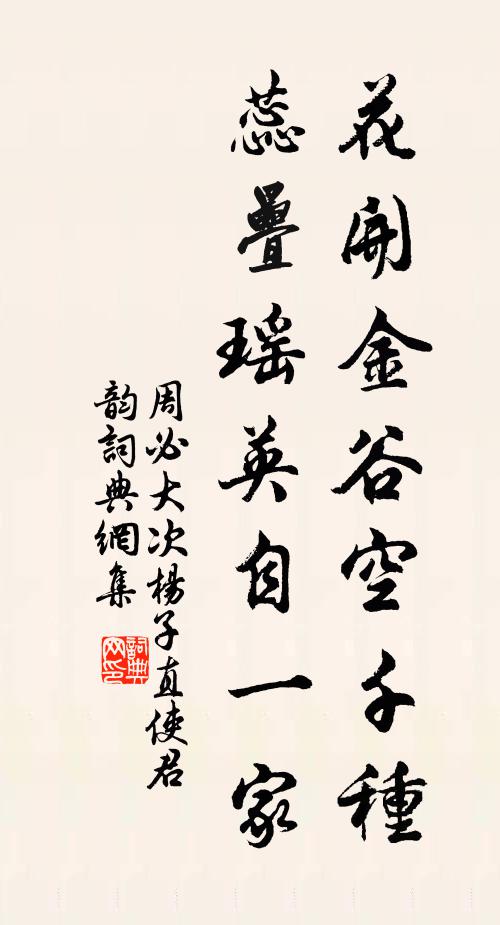 花開金谷空千種
蕊疊瑶英自一家
周必大次楊子直使君
韵詞典網集
詞典
网印